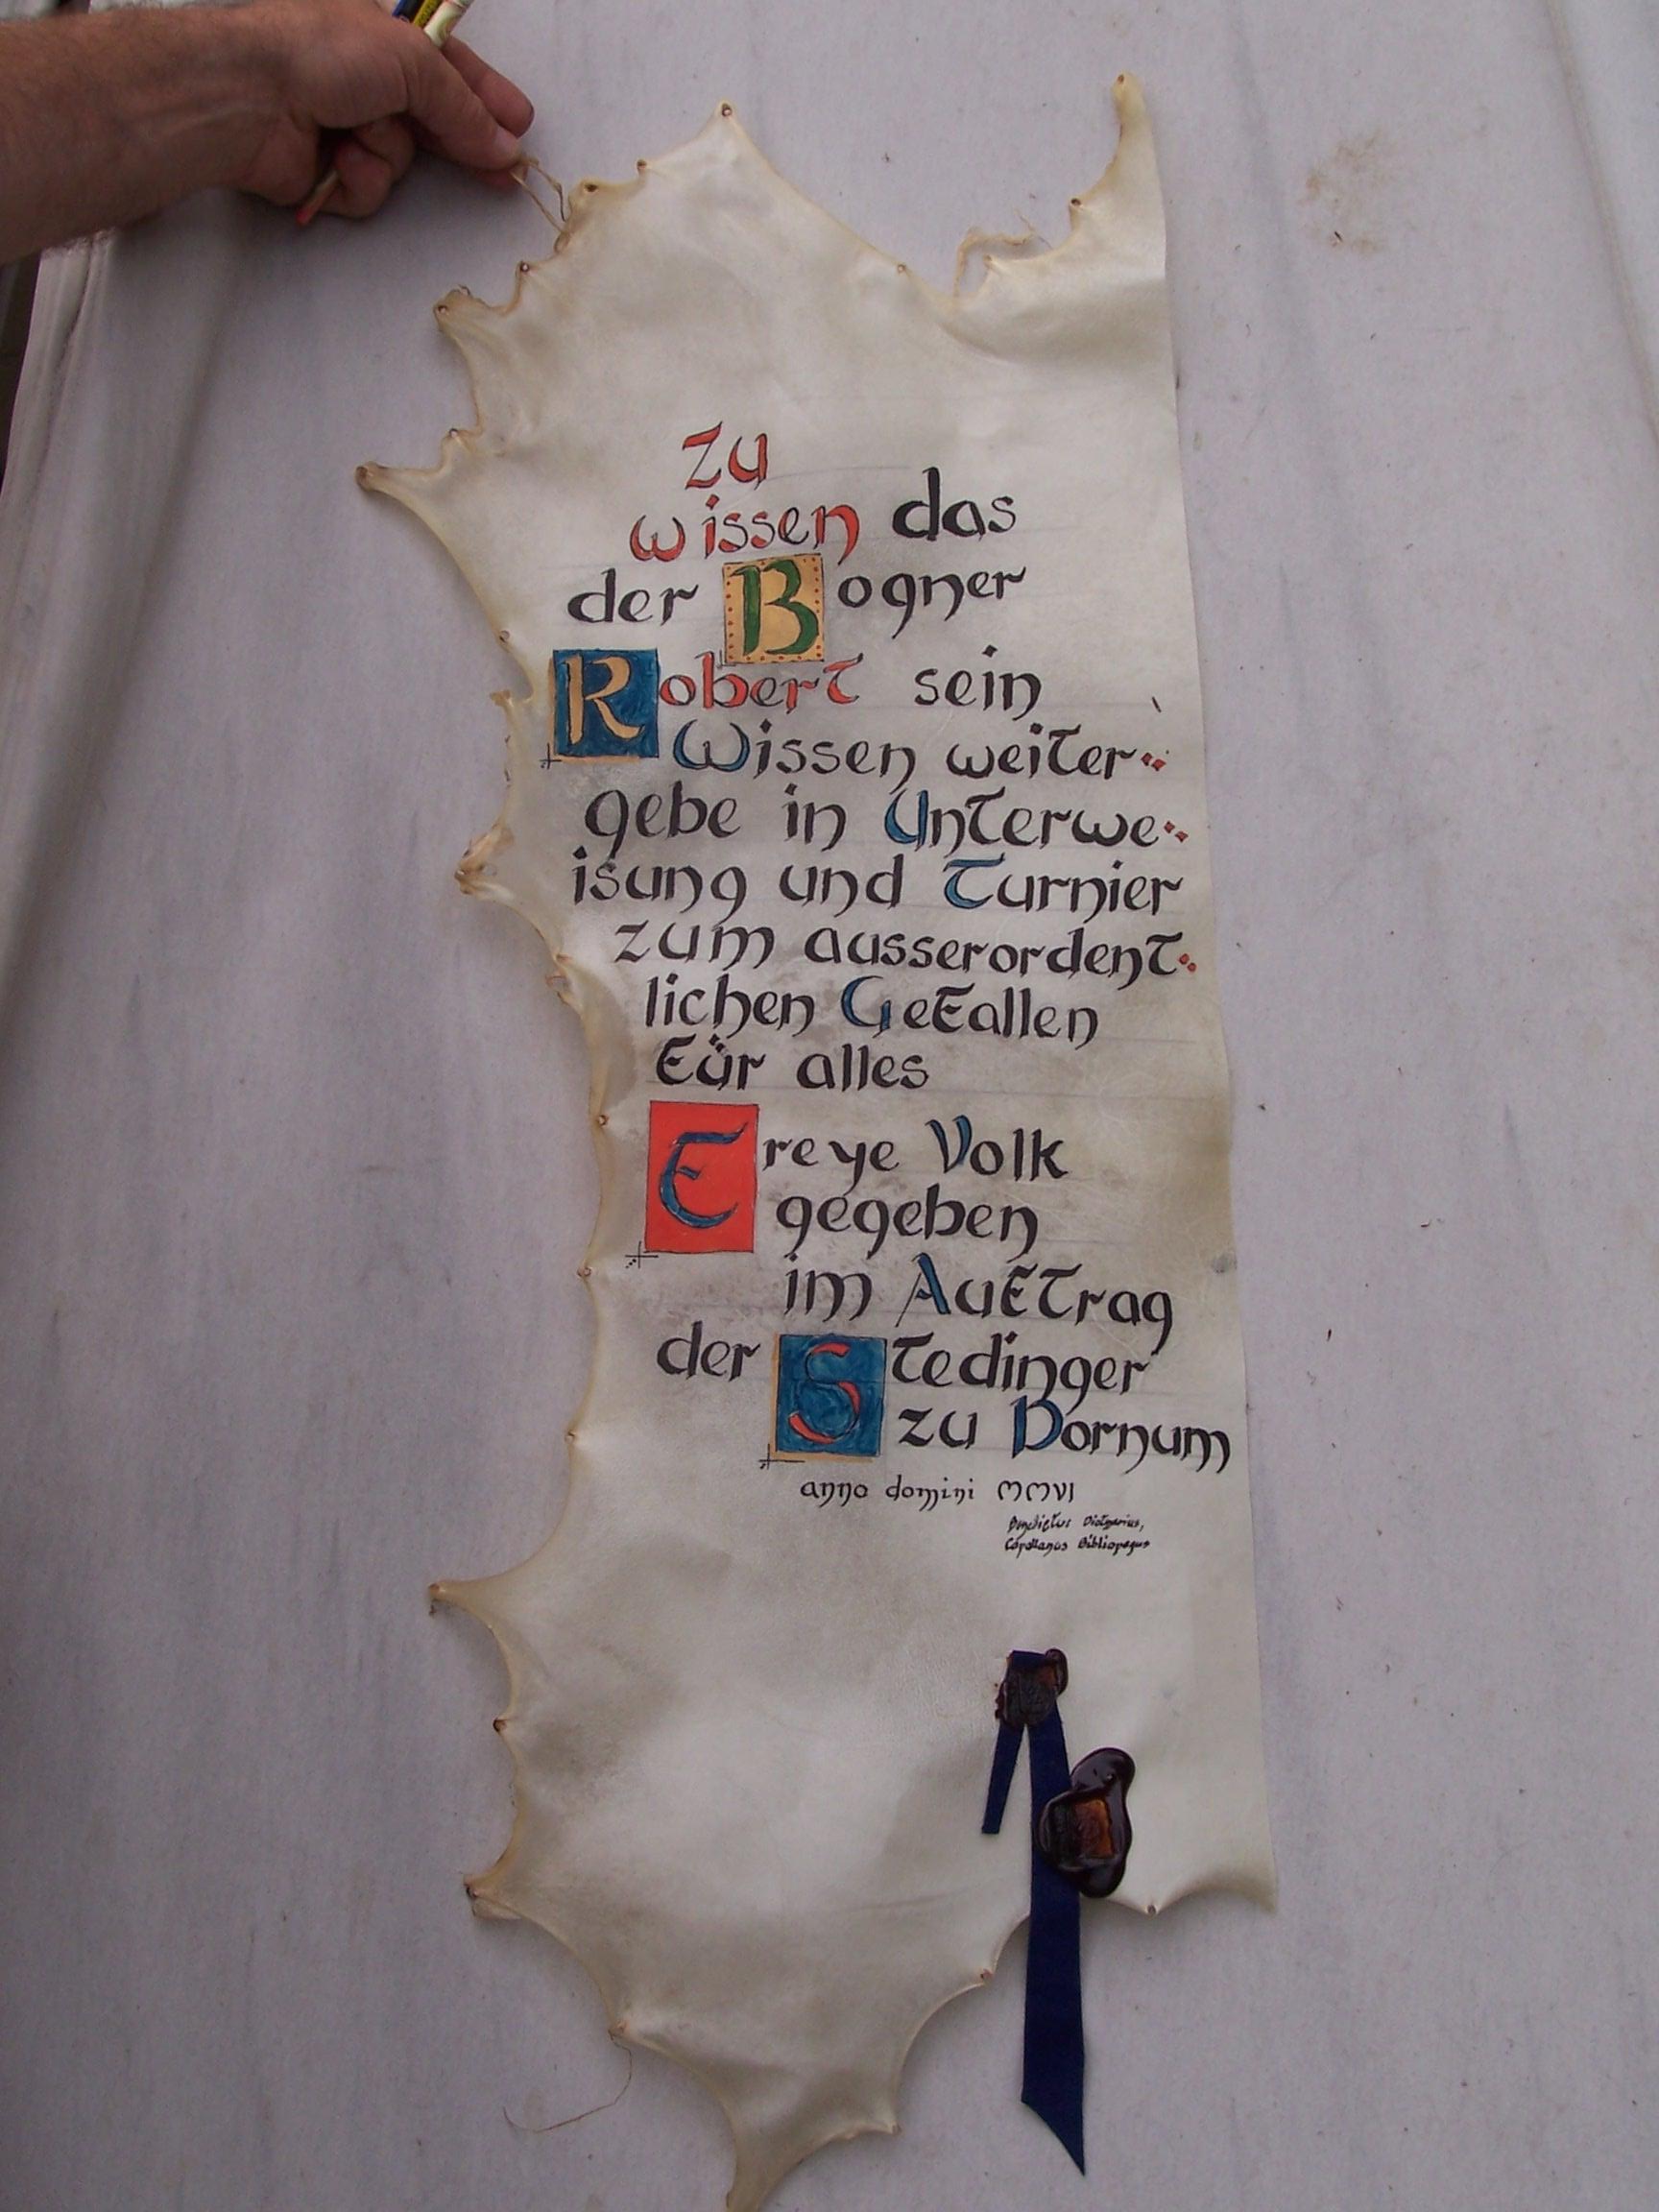 Zu
wissen das
der Bogner
Robert sein
Wissen weiter-
gebe in Unterwe-
isung und Turnier
zum ausserordent-
lichen Gefallen
für alles
Freye Volk
gegeben
im Auftrag
der Stedinger
zu Dornum
anno domini MMVI
Benedictus
Capellanus Bibliopegus